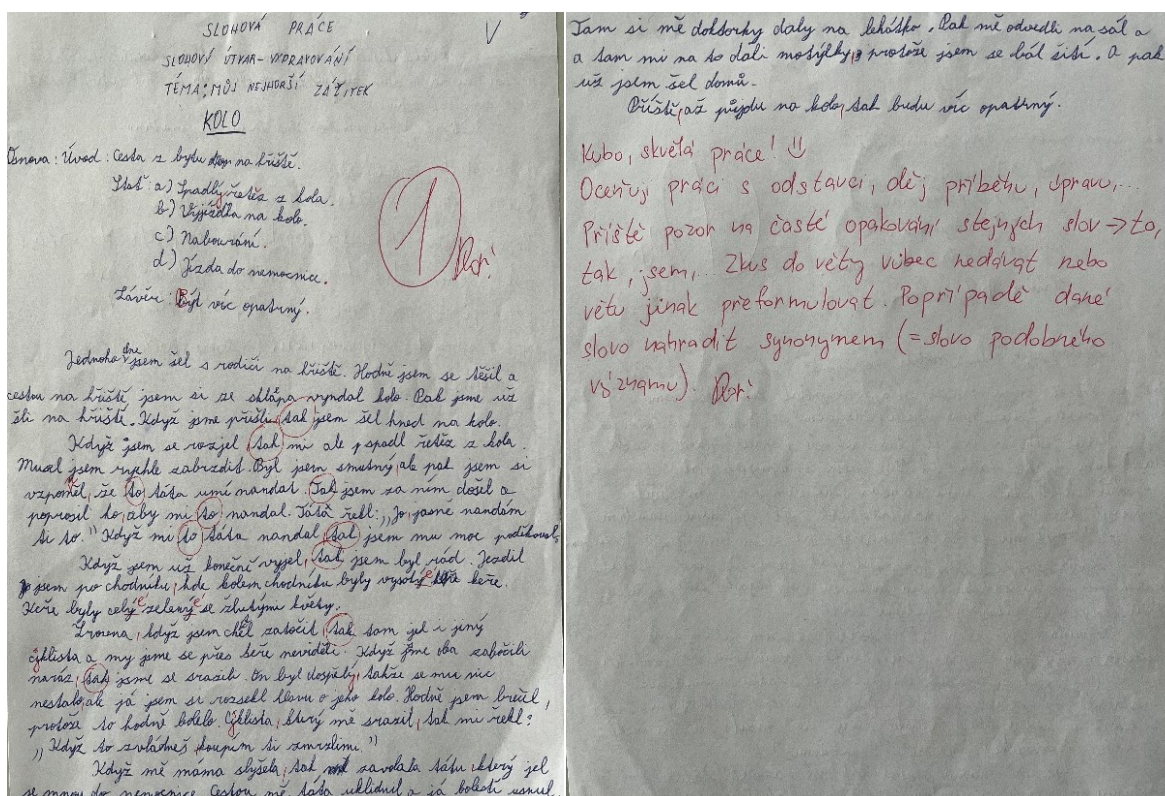 SLOHOVÁ PRÁCE
V
SLOHOVÝ ÚTVAR - VYPRAVOVÁNÍ
TÉMA: MŮJ NEJHORŠÍ ZÁŽITEK
KOLO
Osnova: Úvod: Cesta z bytu na hřiště.
Stať: a) Spadlý řetěz z kola.
b) Vyjížďka na kolo.
c) Nabourání.
d) Jízda do nemocnice.
Závěr: Být víc opatrný.
1
Jednoho dne jsem šel s rodiči na hřiště. Hodně jsem se těšil a
cestou na hřiště jsem si ze sklepa vyndal kolo. Pak jsme už
šli na hřiště. Když jsme přišli, tak jsem šel hned na kolo.
Když jsem se rozjel, tak mi ale spadl řetěz z kola.
Musel jsem rychle zabrzdit. Byl jsem smutný, ale pak jsem si
vzpomněl, že to táta umí nandat. Tak jsem za ním došel a
poprosil ho, aby mi to nandal. Táta řekl: „Jo, jasně nandám
ti to." Když mi to táta nandal, tak jsem mu moc poděkoval.
Když jsem už konečně vyjel, tak jsem byl rád. Jezdil
jsem po chodníku, kde kolem chodníku byly vysoké keře.
Keře byly celé zelené se žlutými květy.
Zrovna, když jsem chtěl zatočit, tak tam jel i jiný
cyklista a my jsme se přes keře neviděli. Když jsme oba zabočili
naráz, tak jsme se srazili. On byl dospělý, takže se mu nic
nestalo, ale já jsem si rozsekl hlavu o jeho kolo. Hodně jsem brečel,
protože to hodně bolelo. Cyklista, který mě srazil, tak mi řekl:
„Když to zvládneš, koupím ti zmrzlinu."
Když mě máma slyšela, tak zavolala tátu, který jel
se mnou do nemocnice. Cestou mě táta uklidnil a já bolestí usnul.
Tam si mě doktorky daly na lehátko. Pak mě odvedli na sál a
a tam mi na to dali motýlky, protože jsem se bál šití. A pak
už jsem šel domů.
Příště, až půjdu na kolo, tak budu víc opatrný.
Kubo, skvělá práce! ☺
Oceňuji práci s odstavci, děj příběhu, úpravu,...
Příště pozor na časté opakování stejných slov => to,
tak, jsem,... Zkus do věty vůbec nedávat nebo
větu jinak přeformulovat. Popřípadě dané
slovo nahradit synonymem (= slovo podobného
významu).